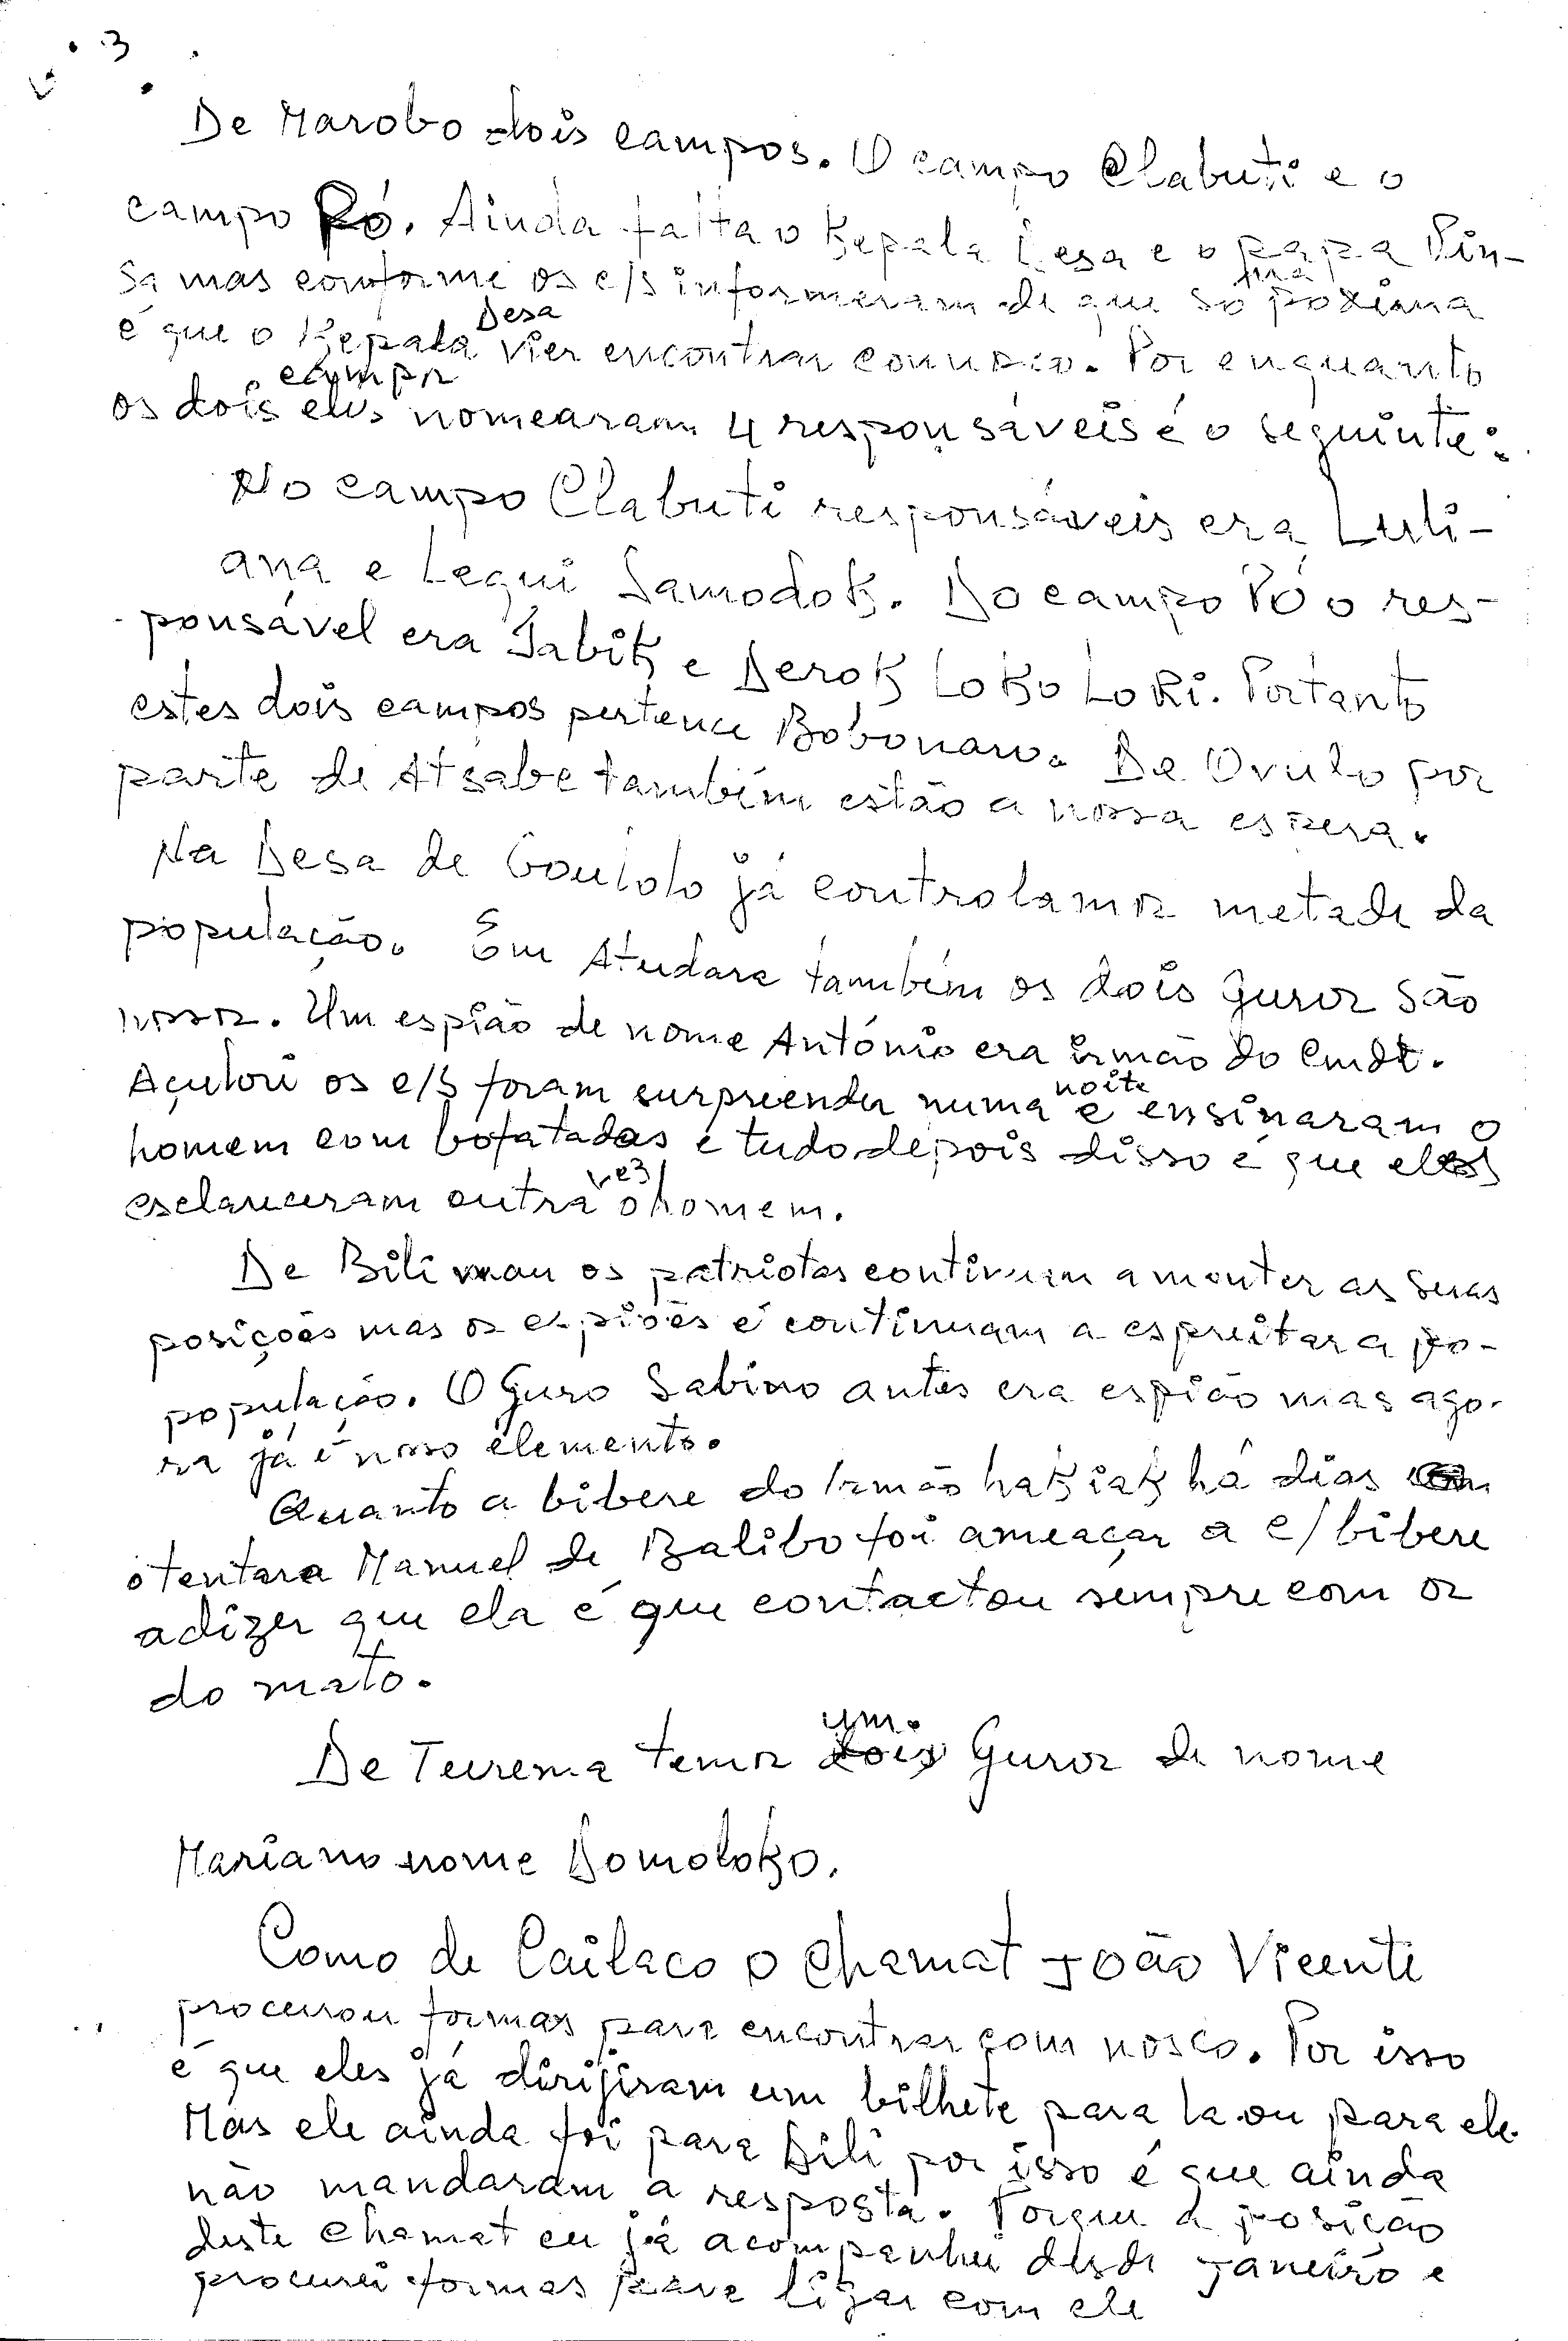 3
De Marobo dois campos. O campo Clabuti e o
campo Pó. Ainda falta o Kepala Desa e o papa Pin-
sa mas conforme os c/s informeram de que só na poxima
é que o Kepala Desa vier encontrar connosco. Por enquanto
os dois campos eles nomearam 4 responsáveis é o seguinte:
No campo Clabuti responsáveis era Luli-
ana e Lequi Samodok. Do campo Pó o res-
ponsável era Tabik e Derok Loko Loki. Portanto
estes dois campos pertence Bobonaro. De Ovulo por
parte de Atsabe também estão a nossa espera.
Na Desa de Goulolo já controlamos metade da
população. Em Atudara também os dois Guros são
nossos. Um espião de nome António era irmão do Cmdt.
Açulori os c/s foram surpreender numa noite e ensinaram o
homem com bofatadas e tudo depois disso é que eles
esclareceram outra vez o homem.
De Bilimau os patriotas continuam a monter as suas
posições mas os espiões é continuam a espreitar a po-
população. O Guro Sabino antes era espião mas ago-
ra já é nosso elemento.
Quanto a bibere do Irmão hakiak há dias
o tentara Manuel de Balibo foi ameaçar a c/bibere
a dizer que ela é que contactou sempre com os
do mato.
De Teurema temos um Guros de nome
Mariano nome Domoloko.
Como de Cailaco o Chamat João Vicente
procurou formas para encontrar com nosco. Por isso
é que eles já dirijiram um bilhete para la ou para ele.
Mas ele ainda foi para Dili por isso é que ainda
não mandaram a resposta. Porque a posição
deste Chamat eu já acompanhei desde Janeiro e
procurei formas para ligar com ele